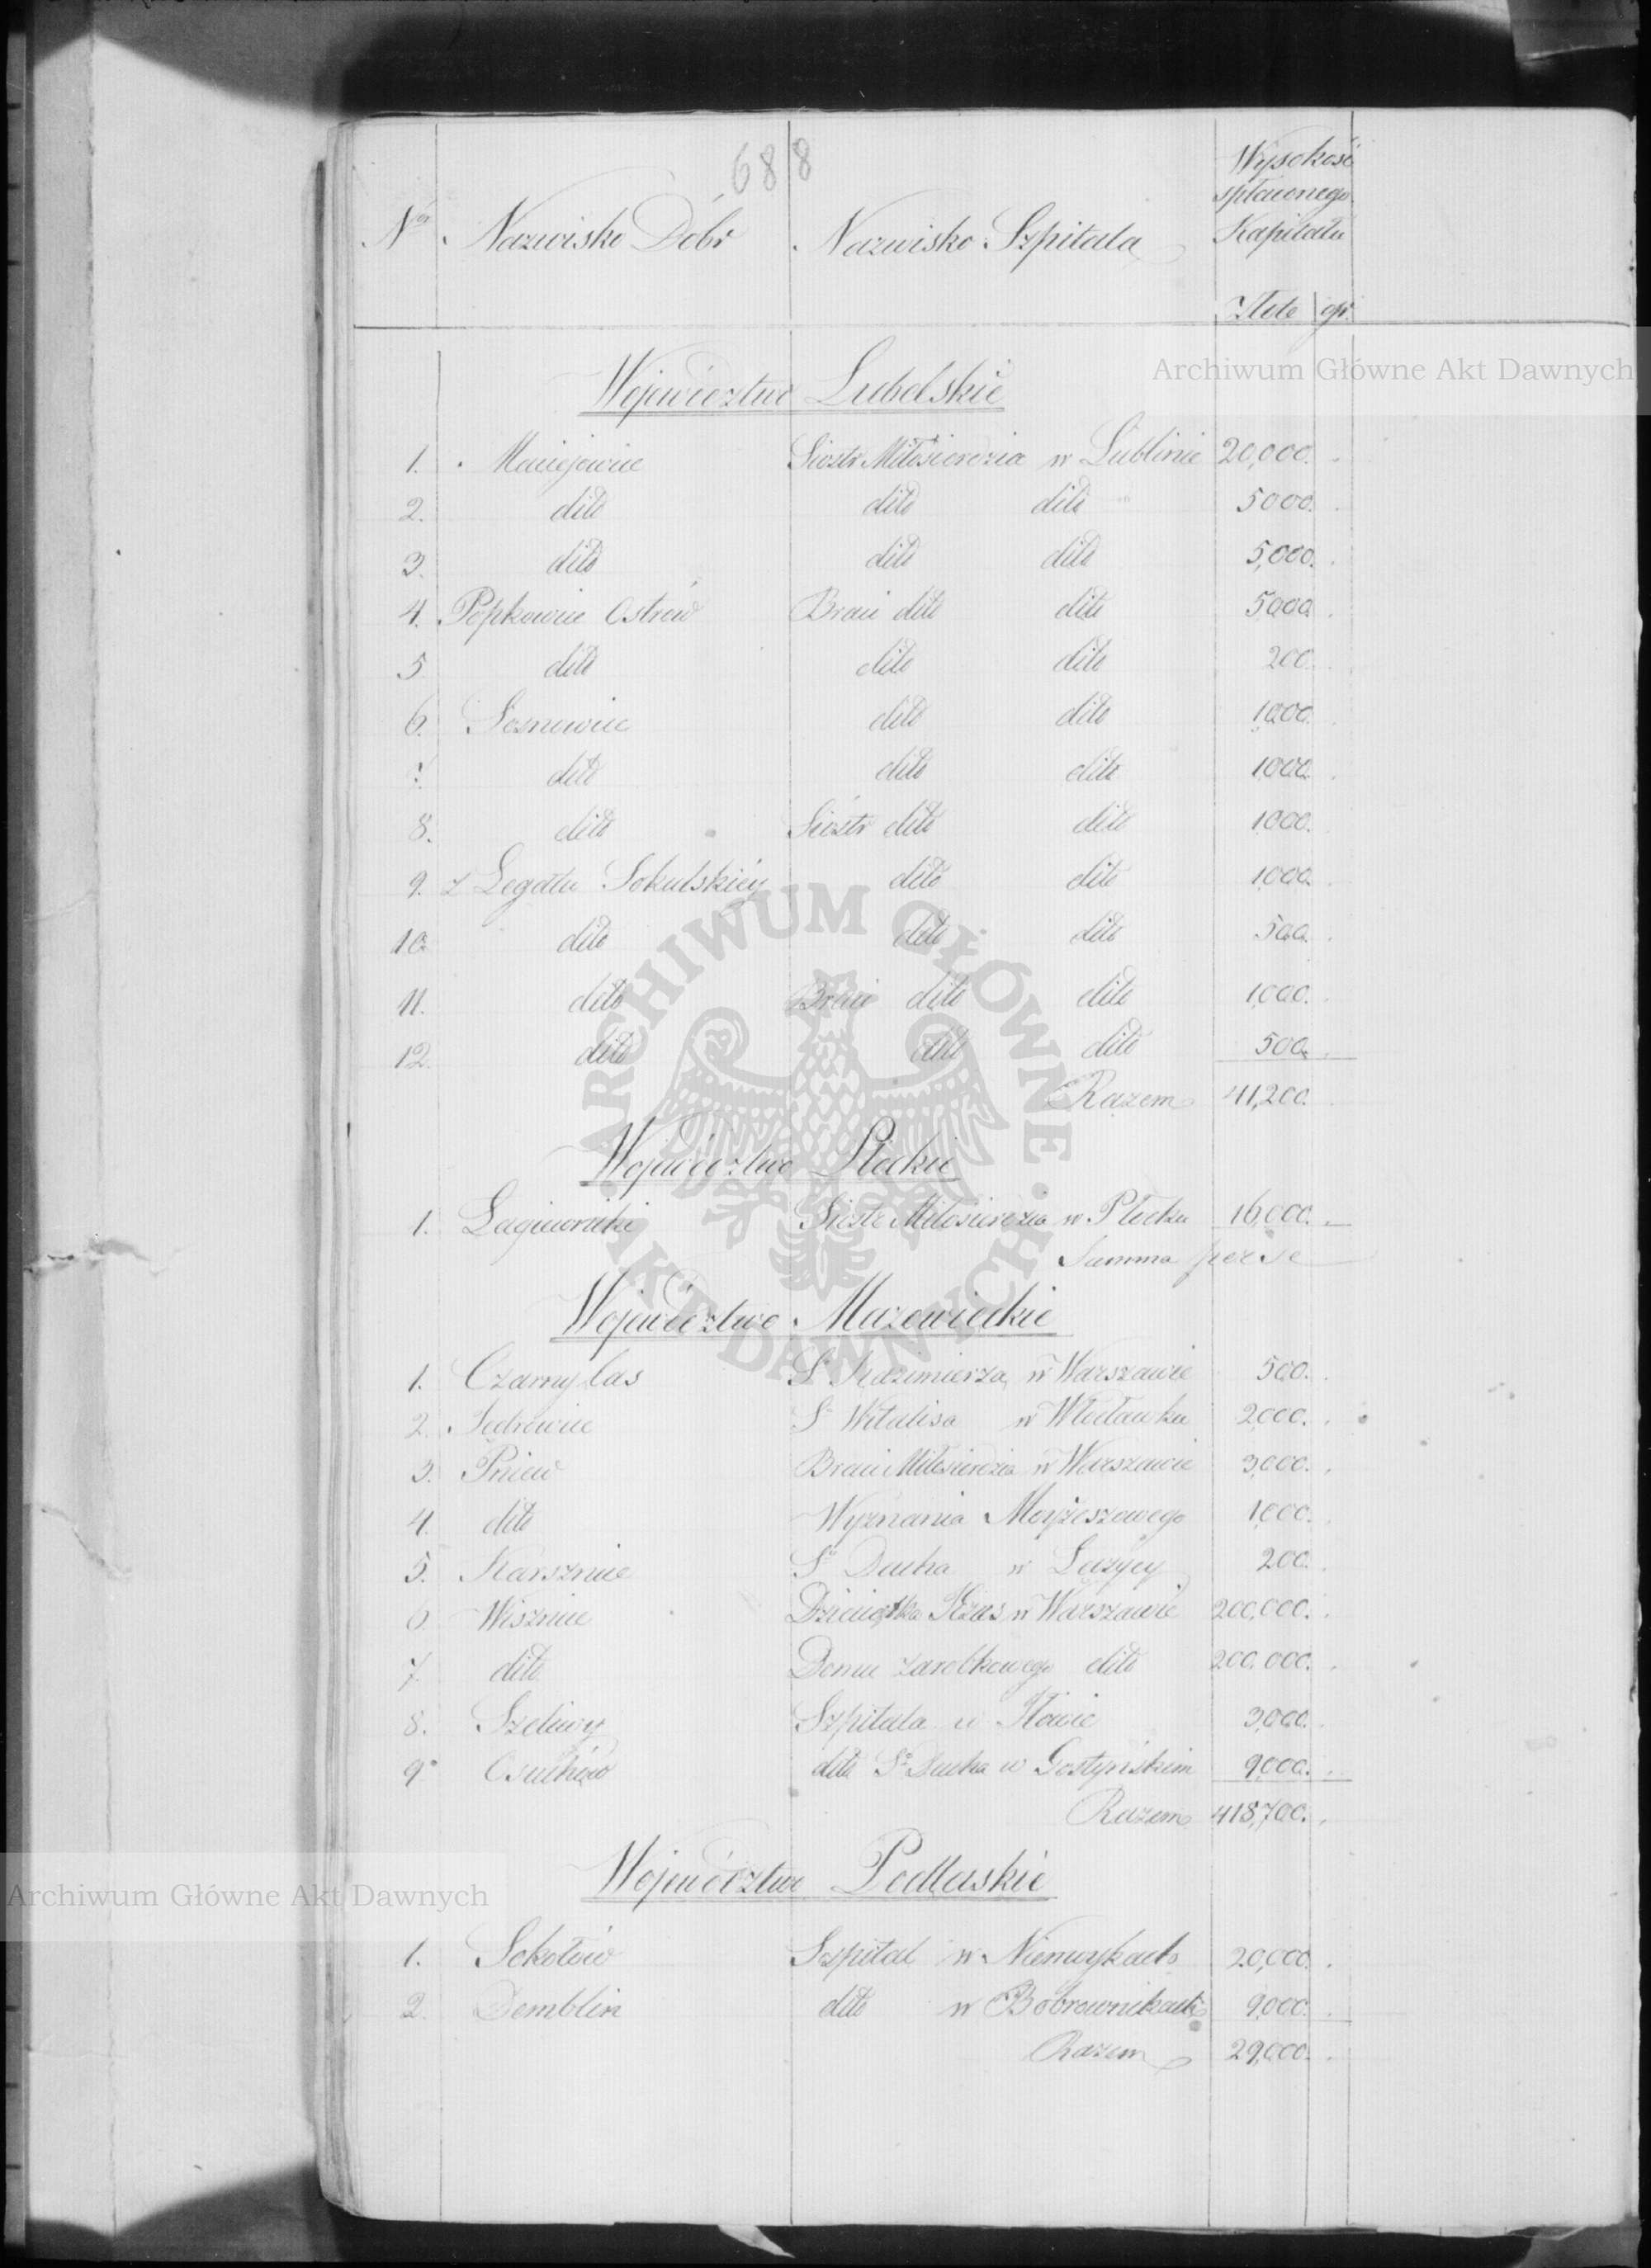 688
Nr Nazwisko Dóbr Nazwisko Szpitala Wysokość
spłaconego
Kapitału
Złote gr.
Województwo Lubelskie
1. Maciejowice Siostr Miłosierdzia w Lublinie 20,000.
2. dito dito dito 5000.
3. dito dito dito 5,000.
4. Popkowice Ostrów Braci dito dito 5,000.
5. dito dito dito 200.
6. Sosnowice dito dito 1,000.
7. dito dito dito 1,000.
8. dito Sióstr dito dito 1,000.
9. z Legatu Sokulskiéy dito dito 1,000.
10. dito dito dito 500.
11. dito Braci dito dito 1,000.
12. dito dito dito 500.
Razem 41,200.
Województwo Płockie
1. Łagiewniki Siostr Miłosierdzia w Płocku 16,000.
Summa per se
Województwo Mazowieckie
1. Czarnylas S. Kazimierza w Warszawie 500.
2. Jedrowice S. Witalisa w Włocławku 2,000.
3. Pniew Braci Miłosierdzia w Warszawie 3,000.
4. dito Wyznania Moyżeszowego 1,000.
5. Karsznice So Ducha w Łęczycy 200.
6. Wisznice Dzieciątka Jezus w Warszawie 200,000.
7. dito Domu zarobkowego dito 200,000.
8. Szeliwy Szpitala w Iłowie 3,000.
9. Osuchów dito So Ducha w Gostyńskim 9,000.
Razem 418,700.
Województwo Podlaskie
1. Sokołów Szpital w Niemirykach 20,000.
2. Demblin dito w Bobrownikach 9,000.
Razem 29,000.
Archiwum Główne Akt Dawnych
ARCHIWUM GŁÓWNE AKT DAWNYCH
Archiwum Główne Akt Dawnych